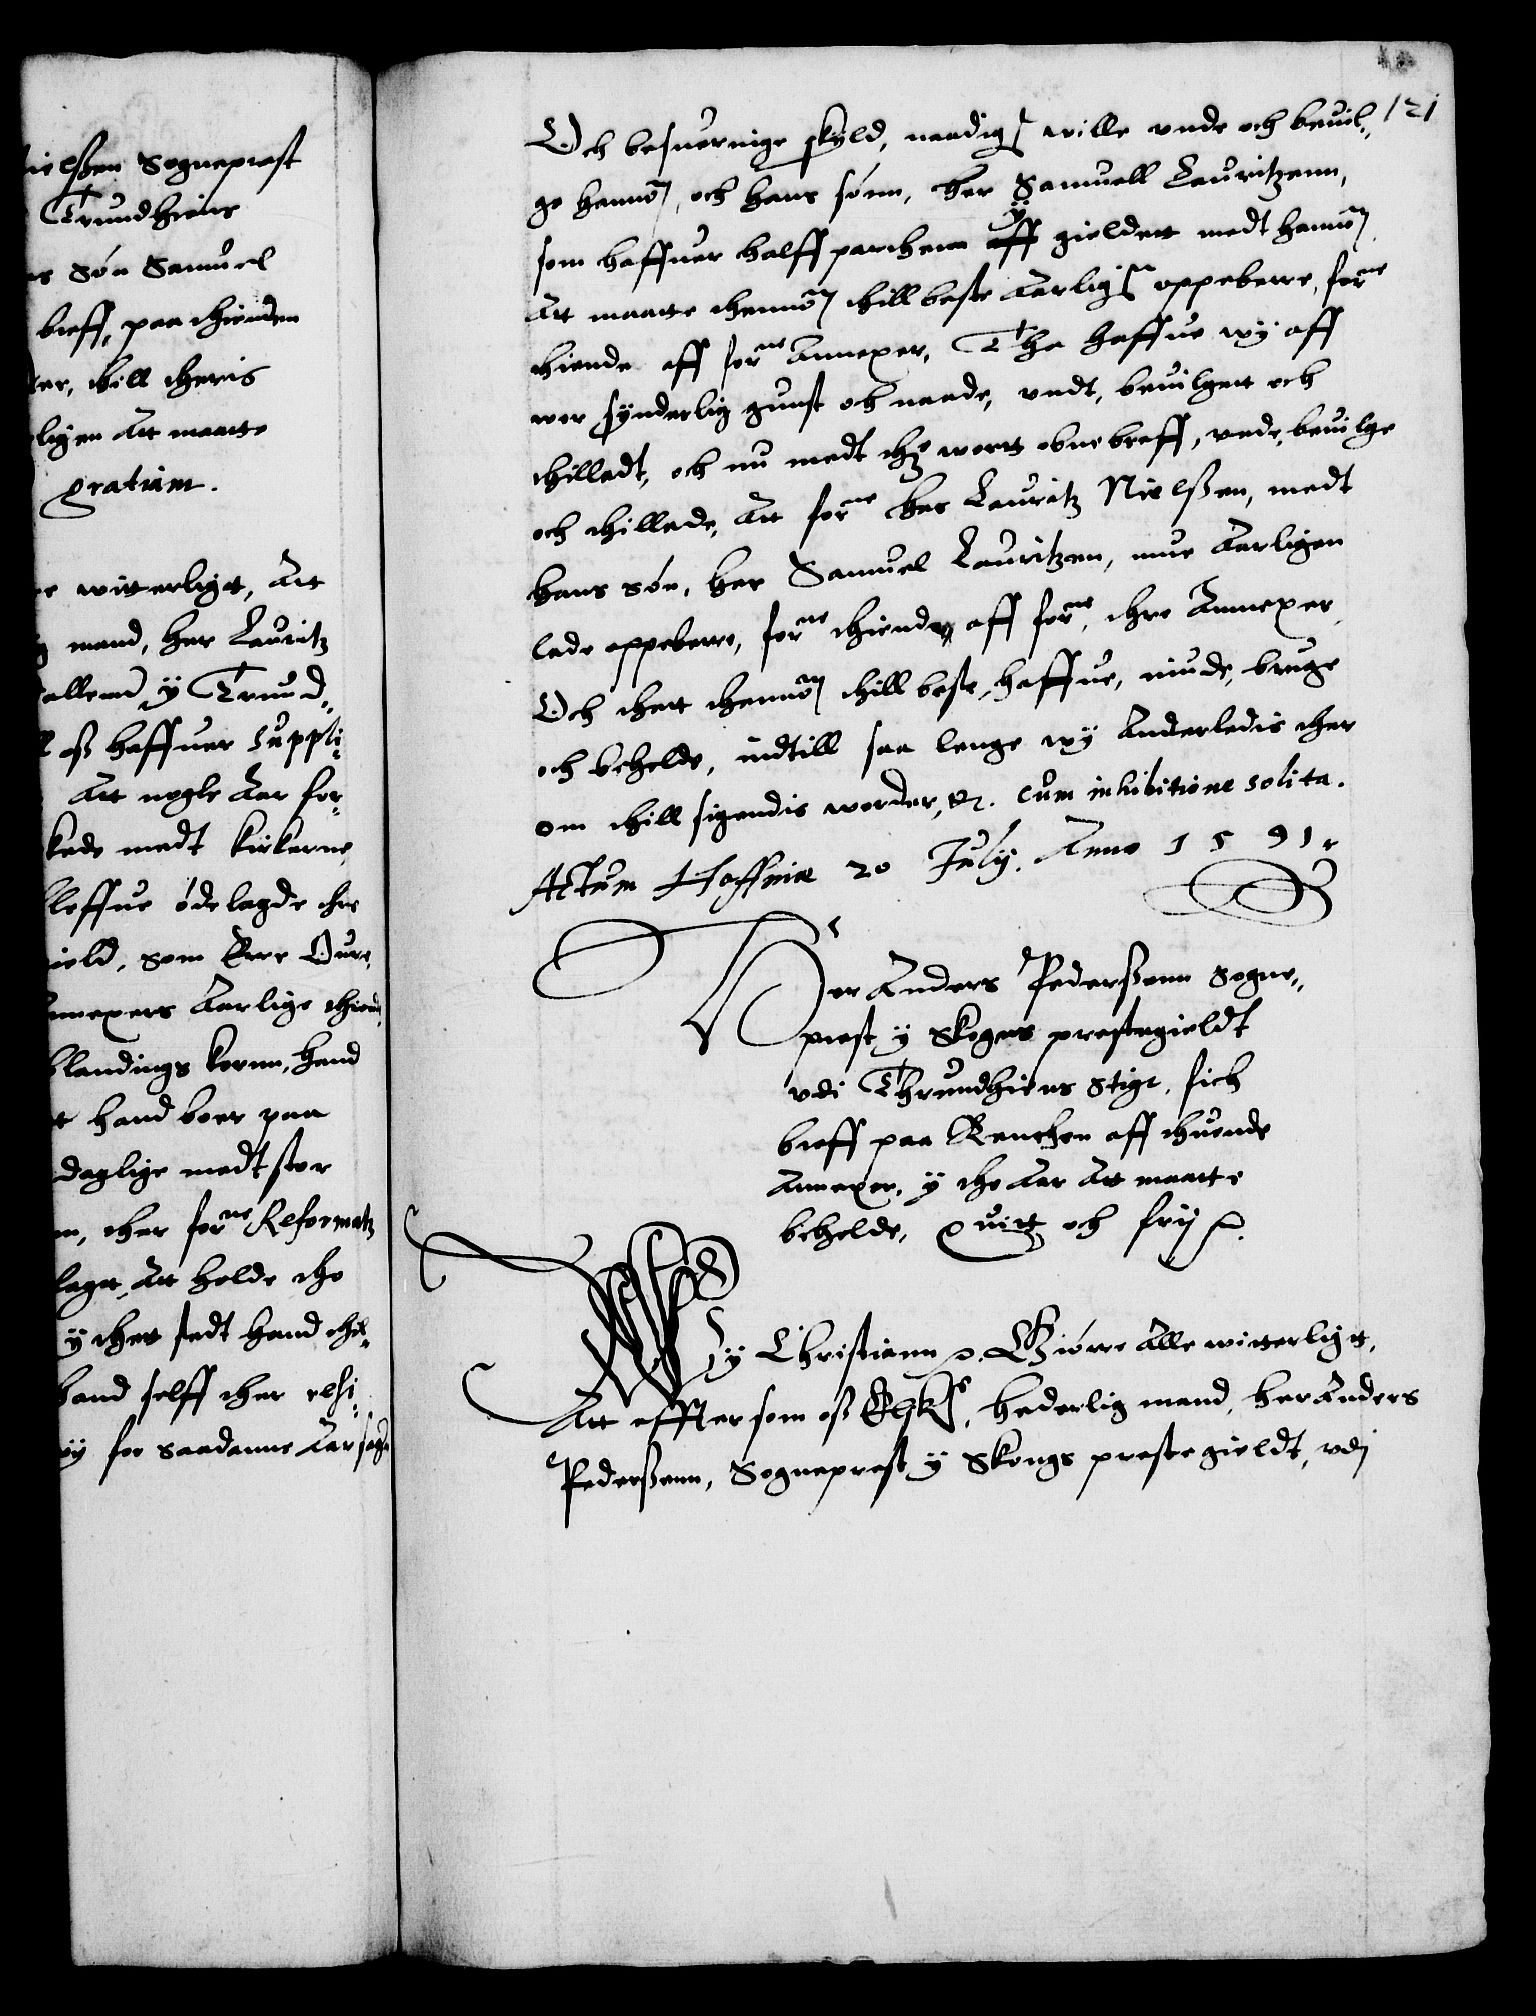 ielßen Sogneprest
Trundhiems
s Søn Samuel
breff, paa thienden
ter, thill theris
ligen Att maatte
gratium.
e witterligt, Att
g mand, her Lauritz
allemd y Trund„
ll oß haffuer suppli„
Att nogle Aar for„
kede medt kirkerne
bleffue ødelagde thre
ield, som Erre Oure,
nnexers Aarlige thiende
blandings kornn, hand
t hand boer paa
daglige medt stor
n, ther forne Reformatz
laget, Att holde the
y thet stedt hand thil„
hand selff ther resi„
wy for saadanne Aarsage
121
Och besuernige skyld, naadigst wille unde och beuil„
ge hannom, och hans sønn, her Samuell Lauritzenn,
som haffuer halffparthenn y aff gieldett medt hannom
Att maatte thennom thill beste Aarligst oppeberre, forne
thiende aff forne Annexer, Tha haffue wy aff
wor synderlig gunst och naade, undt, beuilgett och
thilladt, och nu medt thz wortt obne breff, unde, beuilge
och thillade, Att forne her Lauritz Nielßen, medt
hans søn, her Samuel Lauritzen, mue Aarligen
lade oppeberre, forne thiende aff forne, thre Annexer
Och thett thennom thill beste, haffue, niude, bruge
och beholde, indtill saa lenge wy Anderledis ther
om thill sigendis worder, etc. Cum inhibitione solita.
Actum Haffniæ 20 July. Anno 1591.
Her Anders Pederßenn Sogne„
prest y Skogns prestegieldt
udi Thrundhiems Stigt, fich
breff paa Renthen aff thuende
Annexer, y the Aar Att maatte
beholde, quitt och frij p.
Wy Christiann p. Giørre Alle witterligt,
Att effter som oß Elske, hederlig mand, her Anders
Pederßenn, Sogneprest y Skongs prestegieldt, udi